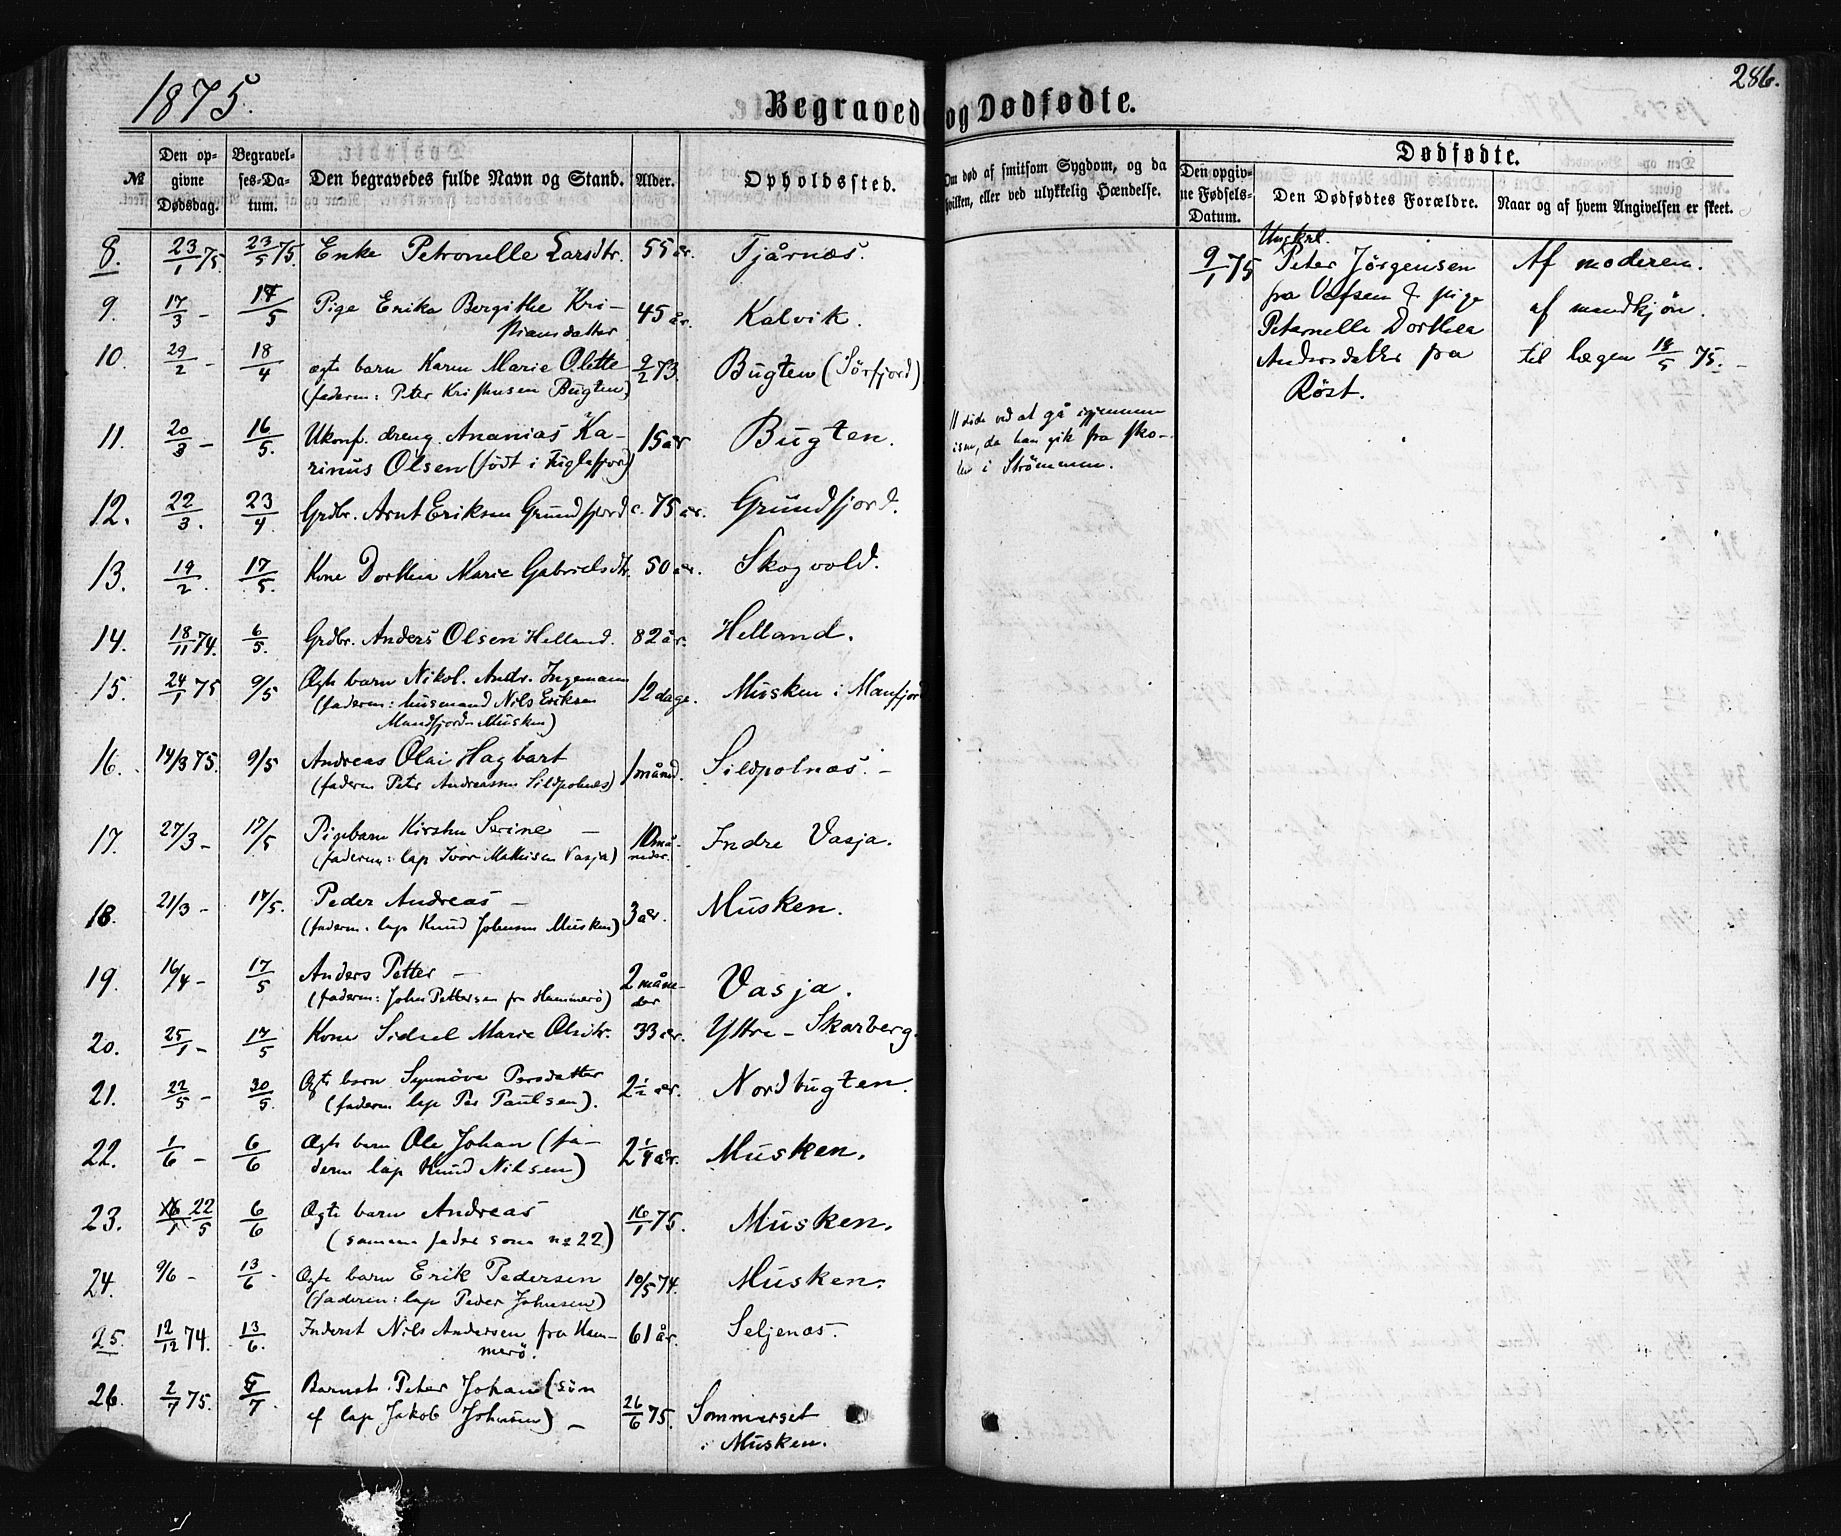 1875.
286.
Begravede og Dødfødte.
№
Den opgivne Dødsdag.
Begravelses-Datum.
Den begravedes fulde Navn og Stand.
Alder.
Opholdssted.
Om død af smitsom Sygdom, og da hvilken, eller ved ulykkelig Hændelse.
Dødfødte.
Den opgivne Fødsels-Datum.
Den Dødfødtes Forældre.
Naar og af hvem Angivelsen er skeet.
8. 23/1 75. 23/5 75. Enke Petronelle Larsdtr. 55 år. Tjårnæs.
9. 17/3 - 17/5 Pige Enika Bergithe Kri-
stiansdatter 45 år. Kalvik.
10. 29/2 - 18/4 ægte barn Karen Marie Olette 9/2 73. Bugten (Sörfjord)
(faderen: Peter Kristensen Bugten)
11. 20/3 - 16/5. Ukonf. dreng Ananias Ka- 15 år Bugten.
rinus Olsen (født i Fuglefjord)
døde ved at gå igjennem
isen, da han gik fra sko-
len i Strömmen.
12. 22/3. 23/4 Grdbr. Arnt Eriksen Grundfjord c. 75 år. Grundfjord.
13. 19/2. 17/5. Kone Dorthea Marie Gabrielsdtr. 50 år. Skogvold.
14. 18/11 74. 6/5. Grdbr. Anders Olsen Helland. 82 år. Helland.
15. 24/1 75 9/5 Ægte barn Nikol. Andr. Ingemann 12 dage. Musken i Manfjord
(faderen: husmand Nils Eriksen
Mandfjord-Musken)
16. 14/3 75. 9/5 Andreas Olai Hagbart 1 månd. Sildpolnæs. -
(faderen Peter Andreassen Sildpolnes)
17. 27/3 - 17/5 Pigebarn Kirsten Serine - 10 må- Indre Vasja.
(faderen: lap Ivar Mathisen Vasja) neder.
18. 21/3 - 17/5. Peder Andreas - 3 år. Musken.
(faderen: lap Knud Johnsen Musken)
19. 16/4 - 17/5 Anders Petter - 2 måne- Vasja.
(faderen: John Pettersen fra Hammerø) der
20. 25/1 - 17/5 Kone Sidsel Marie Olsdtr. 33 år. Ytre-Skarberg.
21. 22/5 - 30/5. Ægte barn Synnöva Persdatter 2½ år. Nordbugten.
(faderen lap Per Paulsen).
22. 1/6 - 6/6 Ægte barn Ole Johan (fa- 2¼ år. Musken.
deren lap Knud Nilsen)
23. 22/5 6/6 Ægte barn Andreas 16/1 75. Musken.
(samme fader som no 22)
24. 9/6 - 13/6 - Ægte barn Erik Pedersen 10/5 74. Musken.
(faderen: lap Peder Johnsen)
25. 12/12 74. 13/6. Inderst Nils Andersen fra Ham- 61 år. Seljenæs.
merö.
26. 2/7 75. 5/7. Barnet Peter Johan (sön 26/6 75. Sommerset
af lap Jakob Johnsen) - i Musken.
9/1 75
Ungkrl.
Peter Jörgensen
fra Vefsen & pige
Peternelle Dorthea
Andersdatter fra
Röst.
Af moderen.
af mandkjön.
til lægen 18/5 75. -